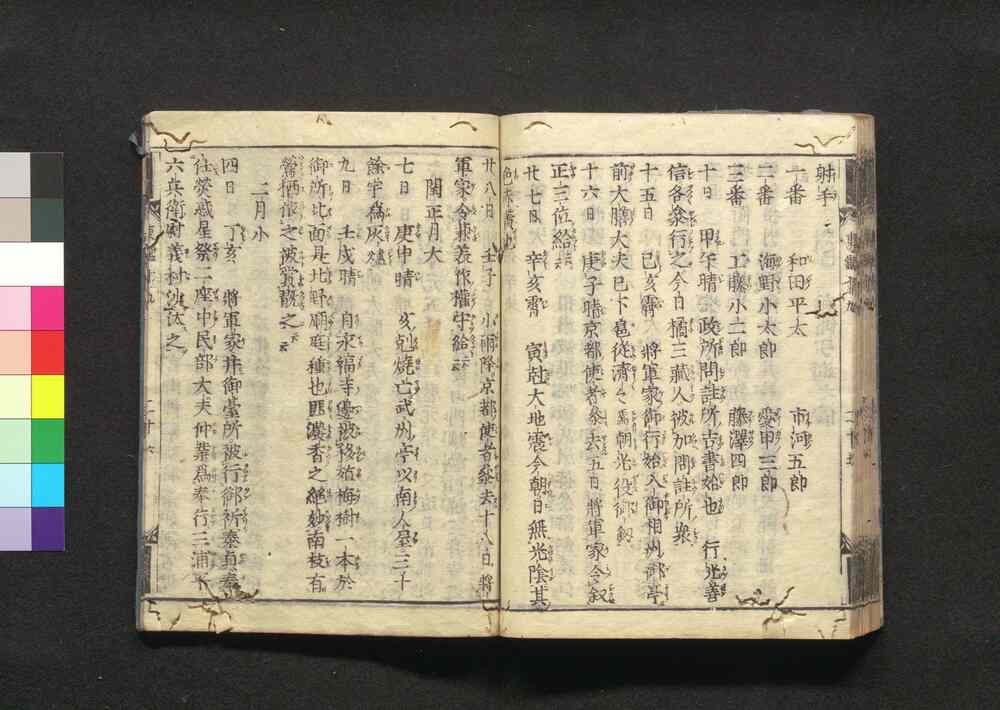 射手
一番 和田平太 市河五郎
二番 海野小太郎 愛甲三郎
三番 工藤小二郎 藤澤四郎
十日 甲午晴 政所問註所吉書始也 行光善
信各參行之今日橘三藏人被加問註所衆
十五日 己亥霽 將軍家御行始入御相州御亭
前大膳大夫已下扈從濟々焉朝光役御劔
十六日 庚子晴京都使者參去五日將軍家令叙
正三位給云云
廿七日 辛亥霽 寅尅大地震今朝日無光陰其
色赤黄也
廿八日 壬子 小雨降京都使者參去十八日將
軍家令兼美作權守給云云
閏正月大
七日 庚申晴 亥剋燒亡武州亭以南人屋三十
餘宇爲灰燼
九日 壬戌晴 自永福寺邊被移殖梅樹一本於
御所北面是北野廟庭種也匪濃香之絶妙南枝有
鶯栖依之被賞翫之云云
二月小
四日 丁亥 將軍家并御臺所被行御祈泰貞奉
仕熒惑星祭二座中民部大夫仲業爲奉行三浦平
六兵衛尉義村沙汰之